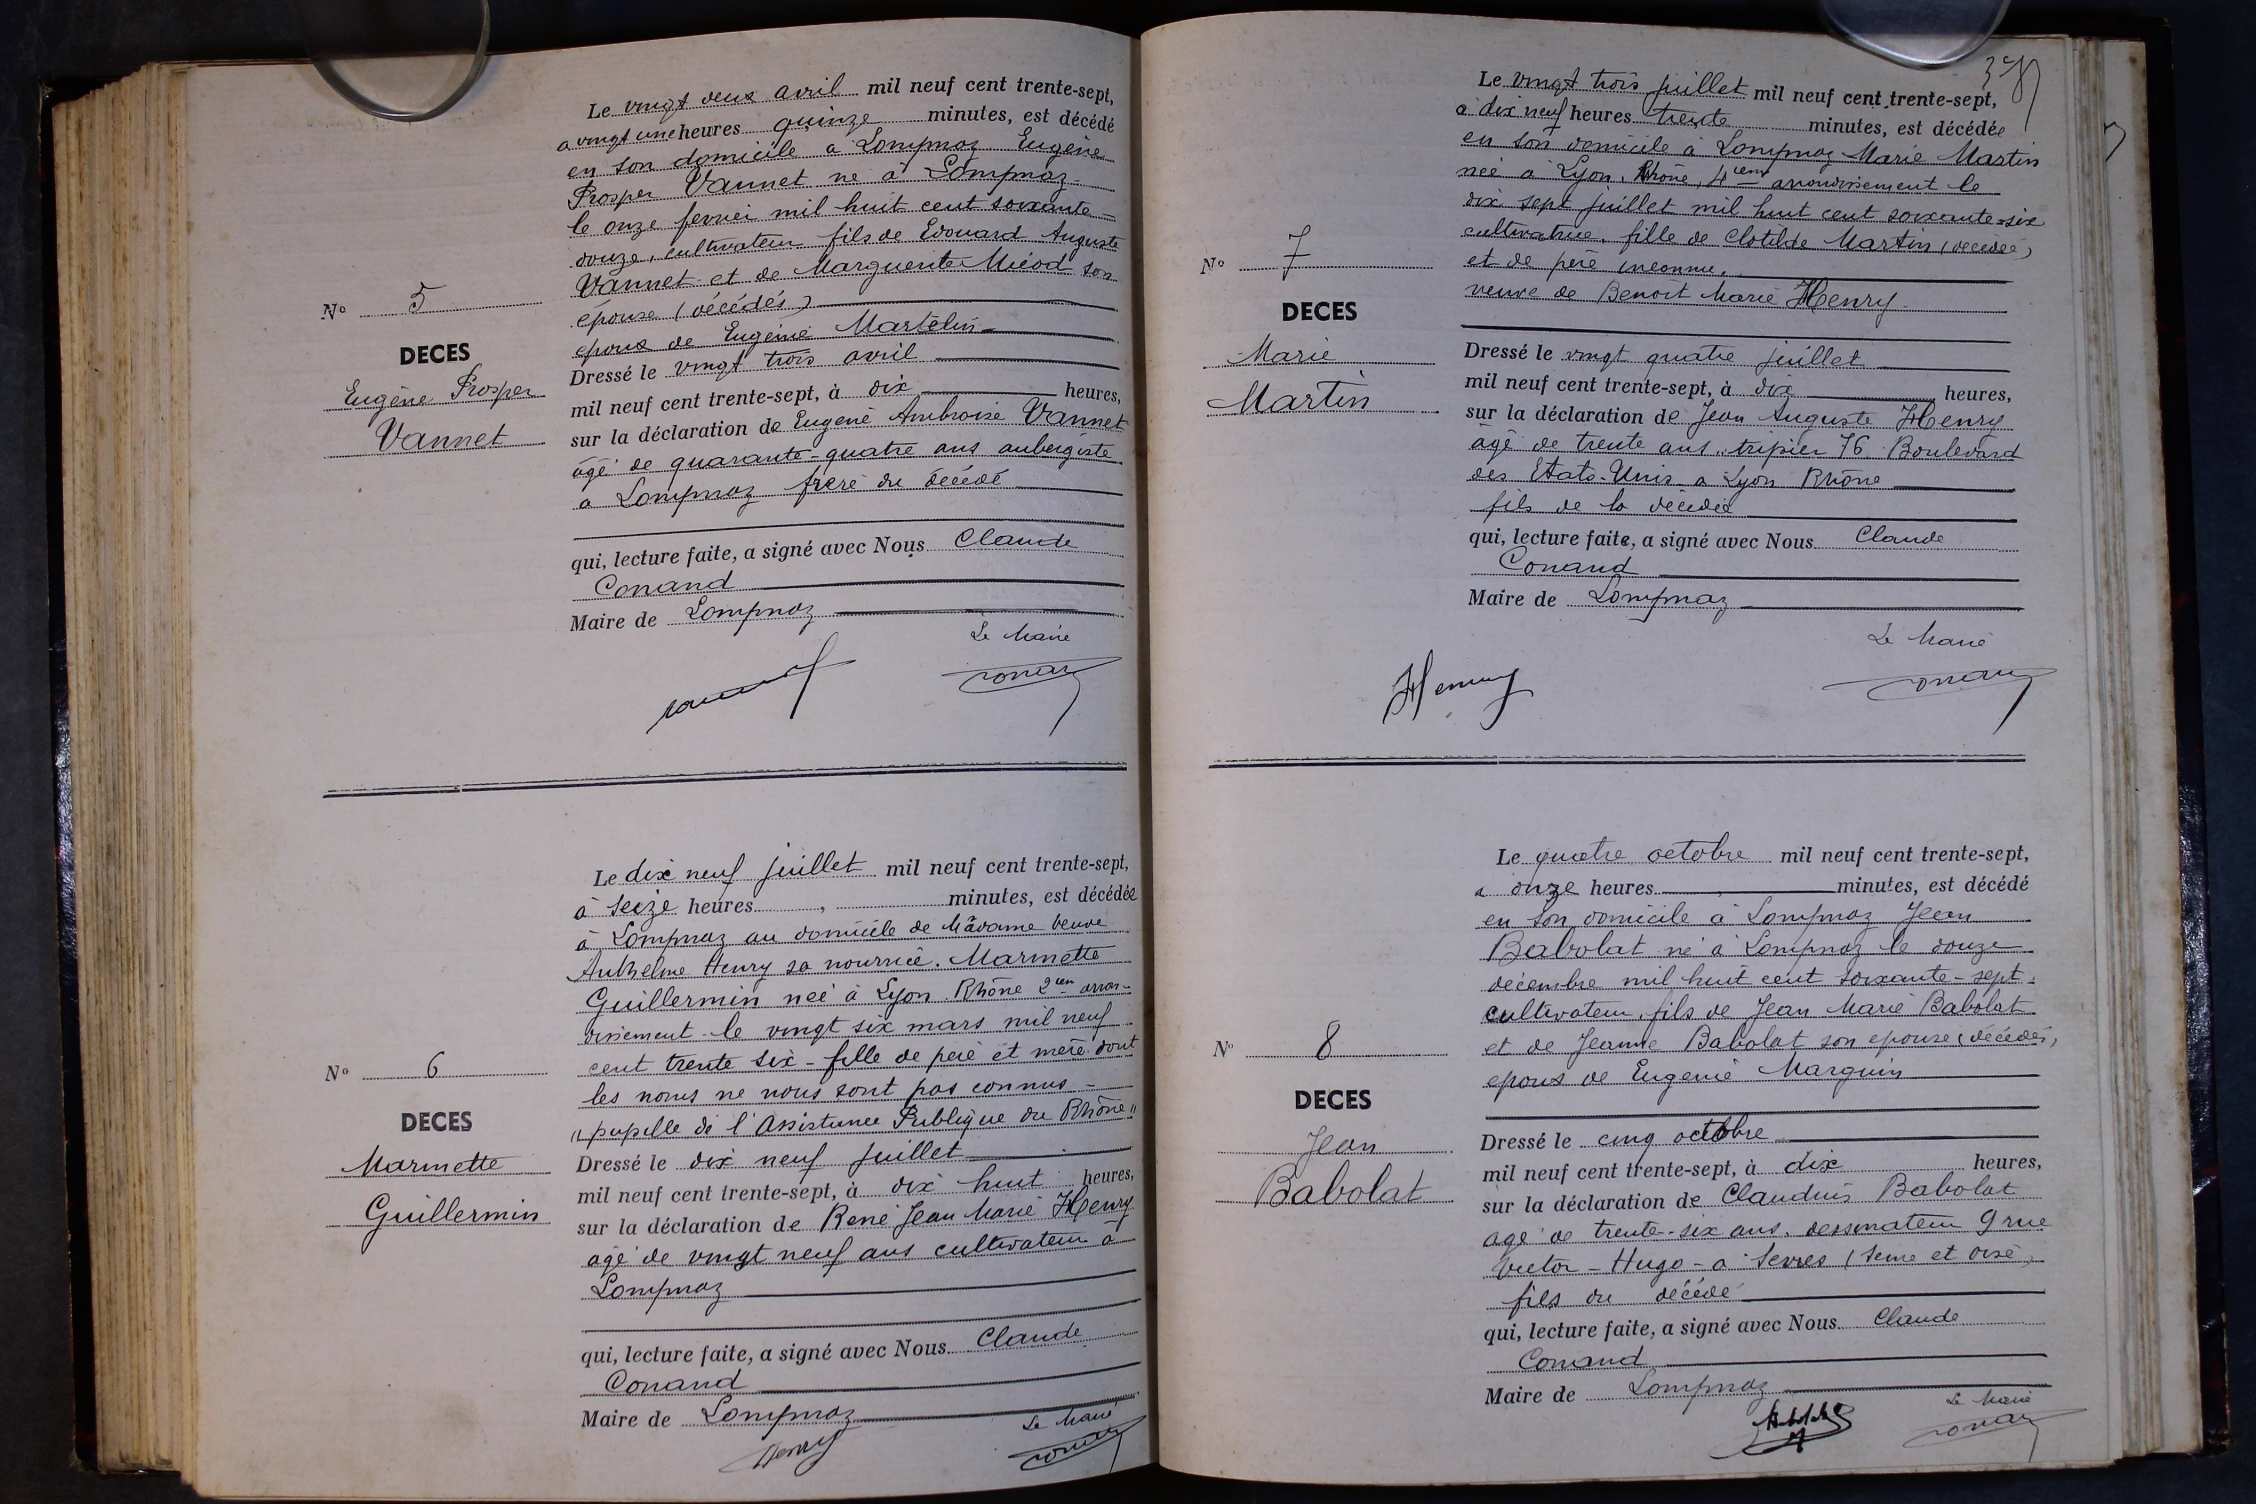 N° 5
DECES
Eugène Prosper
Vannet
Le vingt deux avril mil neuf cent trente-sept,
a vingt une heures quinze minutes, est décédé
en son domicile a Lompnaz Eugène
Prosper Vannet né à Lompnaz
le onze fevrier mil huit cent soixante =
douze, cultivateur fils de Edouard Auguste
Vannet et de Marguerite Miéod son
épouse (décédés)
epoux de Eugénie Martelin
Dressé le vingt trois avril
mil neuf cent trente-sept, à dix heures,
sur la déclaration de Eugene Ambroise Vannet
âgé de quarante-quatre ans aubergiste
a Lompnaz frère du décédé
qui, lecture faite, a signé avec Nous Claude
Conand
Maire de Lompnaz
Le Maire
N° 6
DECES
Marinette
Guillermin
Le dix neuf juillet mil neuf cent trente-sept,
à seize heures , minutes, est décédée
à Lompnaz au domicile de Madame veuve
Anthelme Henry sa nourrice. Marinette
Guillermin née à Lyon Rhône 2em arron-
dissement le vingt six mars mil neuf
cent trente six - fille de père et mère dont
les noms ne nous sont pas connus -
"pupille de l'Assistance Publique du Rhône"
Dressé le dix neuf juillet
mil neuf cent trente-sept, à dix huit heures,
sur la déclaration de René Jean Marie Henry
agé de vingt neuf ans cultivateur à
Lompnaz
qui, lecture faite, a signé avec Nous Claude
Conand
Maire de Lompnaz
Le Maire
Henry
N° 7
DECES
Marie
Martin
Le vingt trois juillet mil neuf cent trente-sept,
a dix neuf heures trente minutes, est décédée
en son domicile à Lompnaz Marie Martin
née à Lyon, Rhône, 4em arrondissement le
dix sept juillet mil huit cent soixante-six
cultivatrice, fille de Clotilde Martin (décédée)
et de père inconnu,
veuve de Benoit Marie Henry
Dressé le vingt quatre juillet
mil neuf cent trente-sept, à dix heures,
sur la déclaration de Jean Auguste Henry
âgé de trente ans, tripier 76 Boulevard
des Etats-Unis a Lyon Rhône
fils de la décédée
qui, lecture faite, a signé avec Nous Claude
Conand
Maire de Lompnaz
Le Maire
Henry
N° 8
DECES
Jean
Babolat
Le quatre octobre mil neuf cent trente-sept,
a onze heures minutes, est décédé
en son domicile à Lompnaz Jean
Babolat né à Lompnaz le douze
décembre mil huit cent soixante-sept
cultivateur, fils de Jean Marie Babolat
et de Jeanne Babolat son epouse (décédés)
epoux de Eugenie Marguin
Dressé le cinq octobre
mil neuf cent trente-sept, à dix heures,
sur la déclaration de Claudius Babolat
agé de trente-six ans, dessinateur 9 rue
Victor-Hugo - à Sevres (Seine et Oise)
fils du décédé
qui, lecture faite, a signé avec Nous Claude
Conand
Maire de Lompnaz
Le Maire